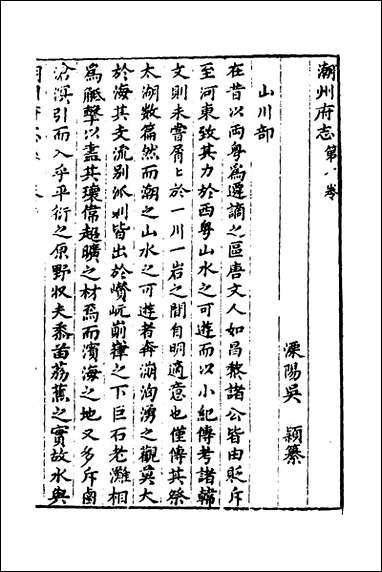 潮州府志第八卷
溧陽吳　頴纂
山川部
在昔以两粤爲遷謫之區唐文人如昌黎諸公皆由貶斥
至河東致其力於西粤山水之可遊而以小紀傳考諸韓
文則未嘗屑屑於一川一岩之間自明適意也僅傳其祭
太湖數篇然而潮之山水之可遊者奔崩洶湧之觀莫大
於海其支流别派則皆出於巑岏巀嶭之下巨石老灘相
爲觝擊以盡其瓌偉超曠之材焉而濱海之地又多斥鹵
滄溟引而入乎平衍之原野収夫黍苗荔蕉之實故水與